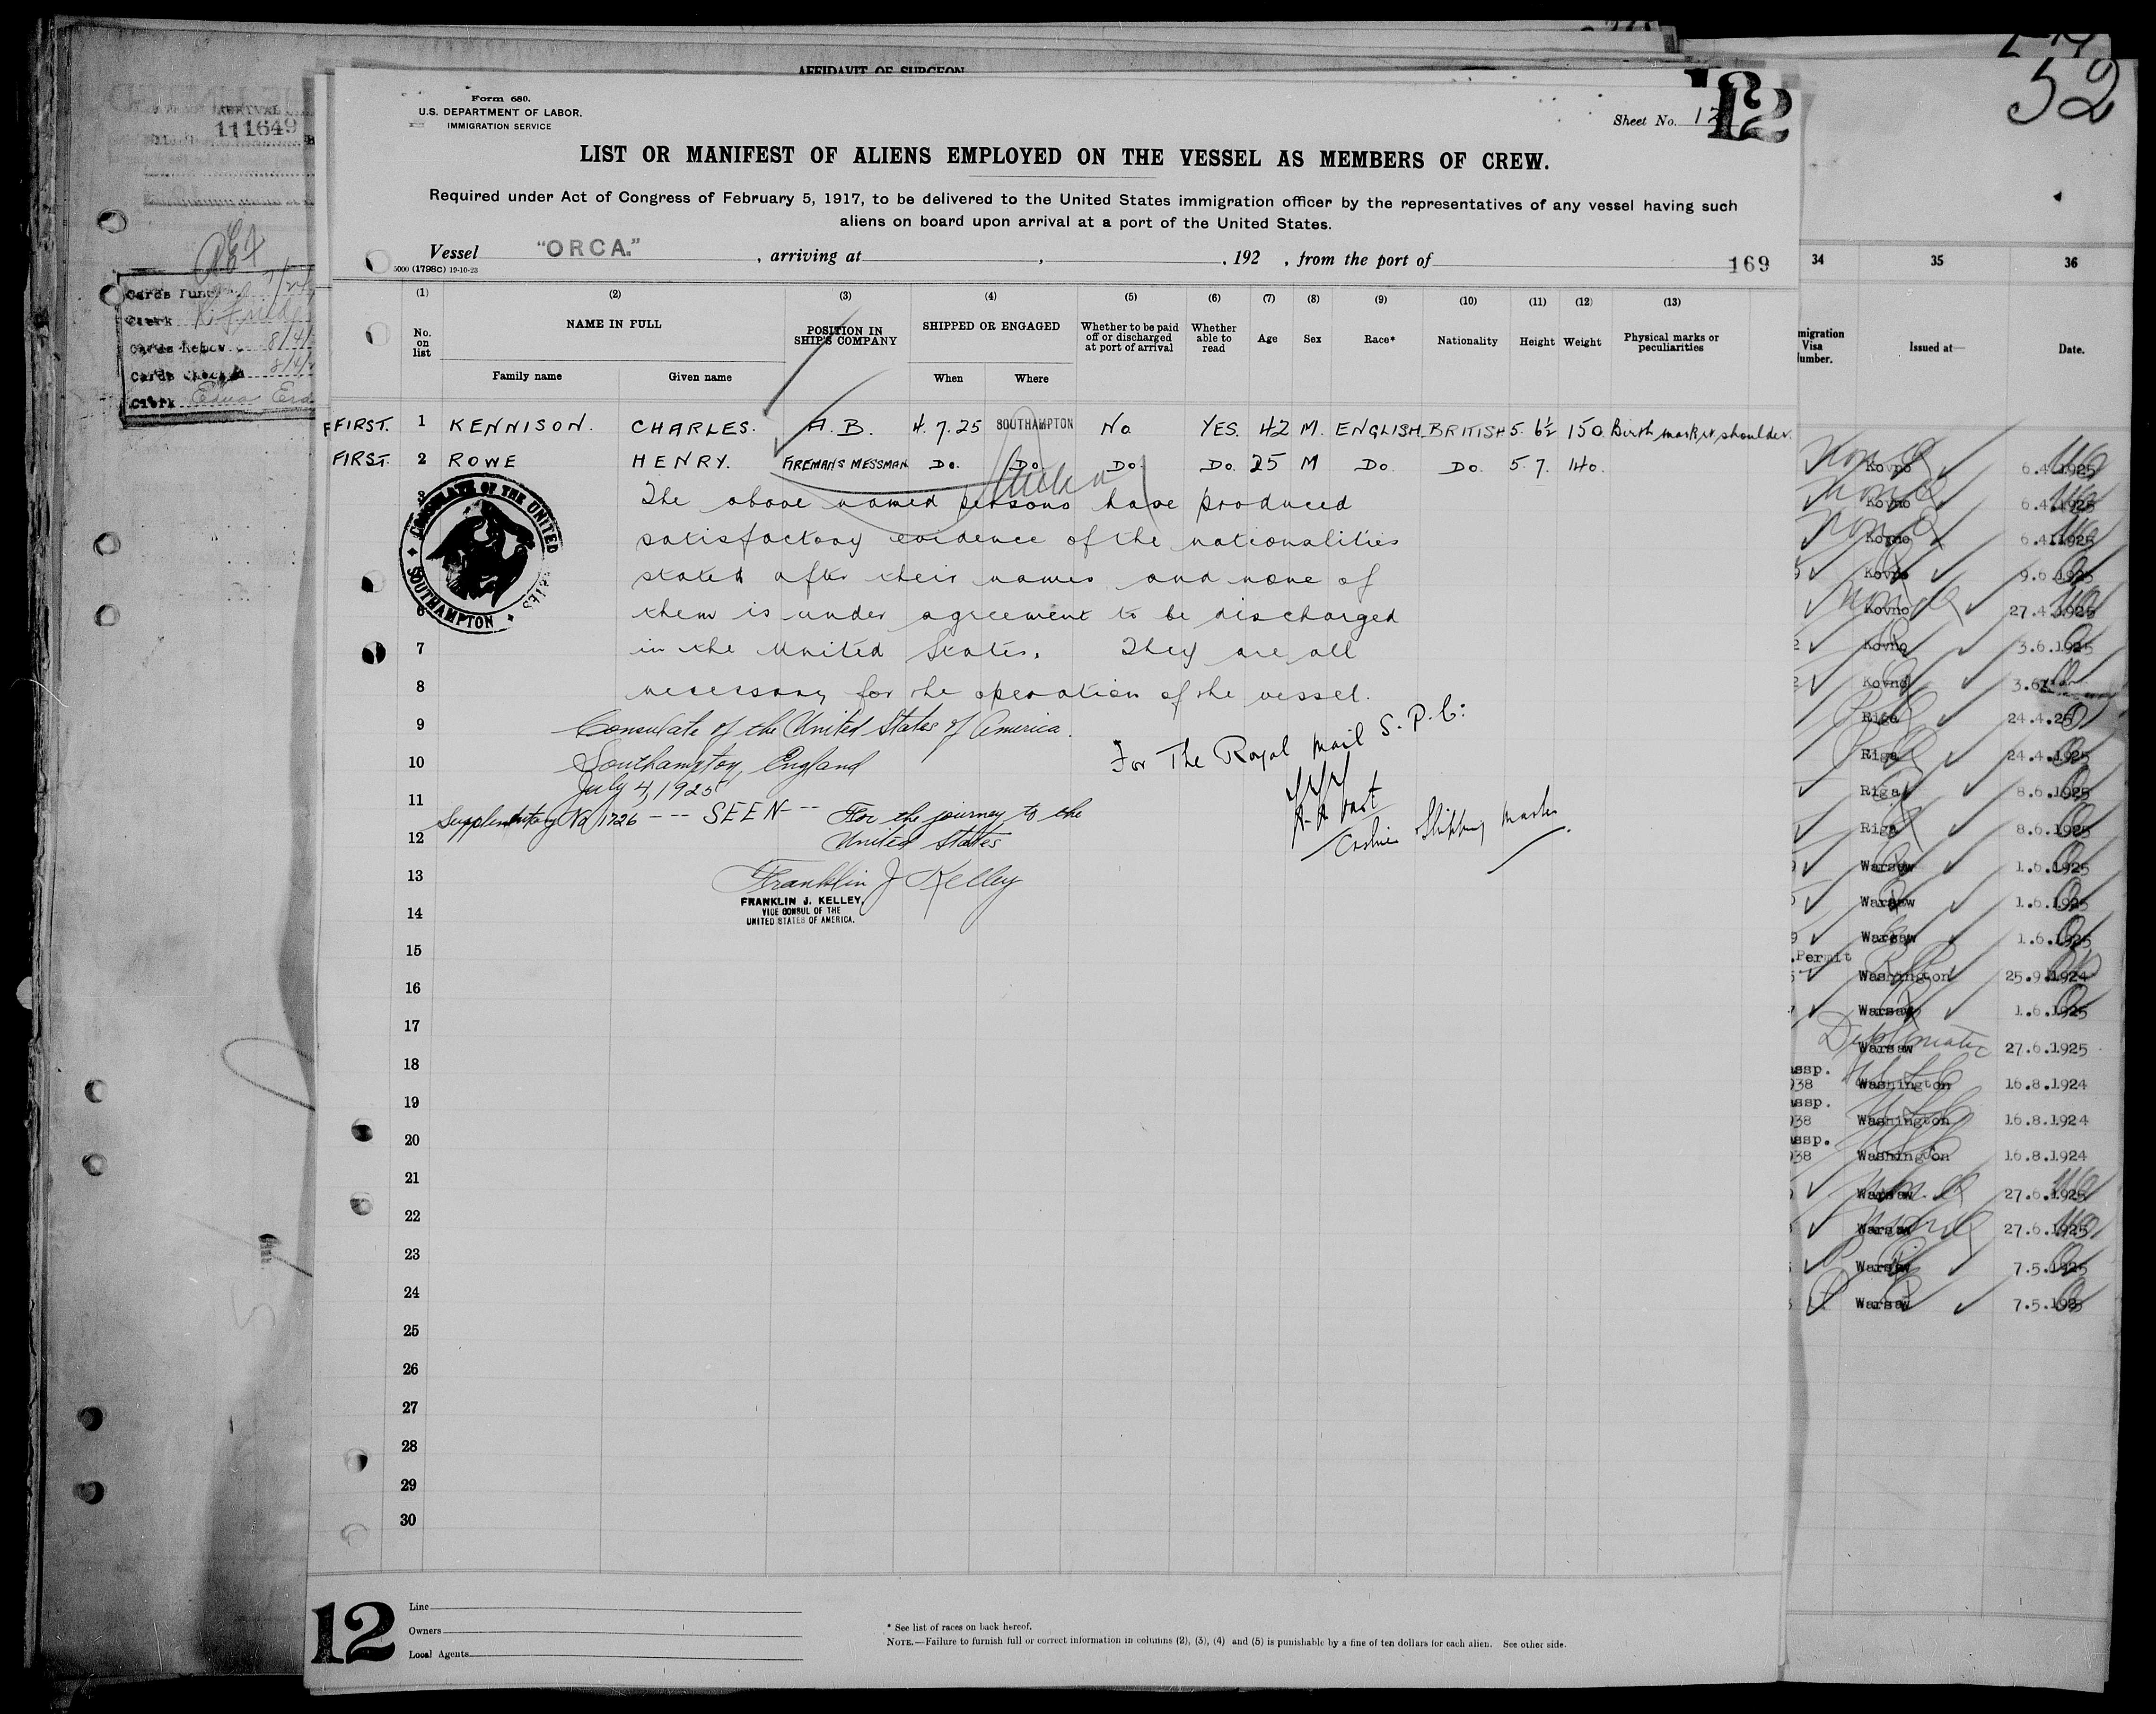 AFFIDAVIT OF SURGEON
52
111649
Form 680.
U.S. DEPARTMENT OF LABOR.
IMMIGRATION SERVICE
Sheet No. 12
12
LIST OR MANIFEST OF ALIENS EMPLOYED ON THE VESSEL AS MEMBERS OF CREW.
Required under Act of Congress of February 5, 1917, to be delivered to the United States immigration officer by the representatives of any vessel having such
aliens on board upon arrival at a port of the United States.
Vessel "ORCA." , arriving at , , 192 , from the port of 169
5000 (1798C) 19-10-23
(1) (2) (3) (4) (5) (6) (7) (8) (9) (10) (11) (12) (13)
No. on list NAME IN FULL POSITION IN SHIP'S COMPANY SHIPPED OR ENGAGED Whether to be paid off or discharged at port of arrival Whether able to read Age Sex Race* Nationality Height Weight Physical marks or peculiarities
Family name Given name When Where
FIRST. 1 KENNISON. CHARLES. A.B. 4.7.25 SOUTHAMPTON No YES. 42 M. ENGLISH BRITISH 5. 6½ 150. Birth mark shoulder.
FIRST. 2 ROWE HENRY. FIREMANS MESSMAN Do. Do Do. Do. 25 M Do. Do. 5. 7. 140.
The above named persons have produced
satisfactory evidence of the nationalities
stated after their names and none of
them is under agreement to be discharged
in the United States. They are all
necessary for the operation of the vessel.
CONSULATE OF THE UNITED STATES
SOUTHAMPTON
Consulate of the United States of America.
Southampton, England
July 4, 1925
Supplementary No 1726 --- SEEN --- For the journey to the
United States
Franklin J Kelley
FRANKLIN J. KELLEY,
VICE CONSUL OF THE
UNITED STATES OF AMERICA.
For The Royal Mail S. P. C:
Shipping Master
3
6
7
8
9
10
11
12
13
14
15
16
17
18
19
20
21
22
23
24
25
26
27
28
29
30
12
Line
Owners
Local Agents
* See list of races on back hereof.
NOTE.—Failure to furnish full or correct information in columns (2), (3), (4) and (5) is punishable by a fine of ten dollars for each alien. See other side.
34 35 36
Visa Issued at— Date.
Kovno 6.4.1925
Kovno 6.4.1925
Kovno 6.4.1925
Kovno 9.6.1925
Kovno 27.4.1925
Kovno 3.6.1925
Kovno
Riga 24.4.25
Riga 24.4.1925
Riga 8.6.1925
Riga 8.6.1925
Warsaw 1.6.1925
Warsaw 1.6.1925
Warsaw 1.6.1925
Permit
Washington 25.9.1924
Warsaw 1.6.1925
Diplomatic
Warsaw 27.6.1925
Washington 16.8.1924
Washington 16.8.1924
Washington 16.8.1924
Warsaw 27.6.1925
Warsaw 27.6.1925
Warsaw 7.5.1925
Warsaw 7.5.1925